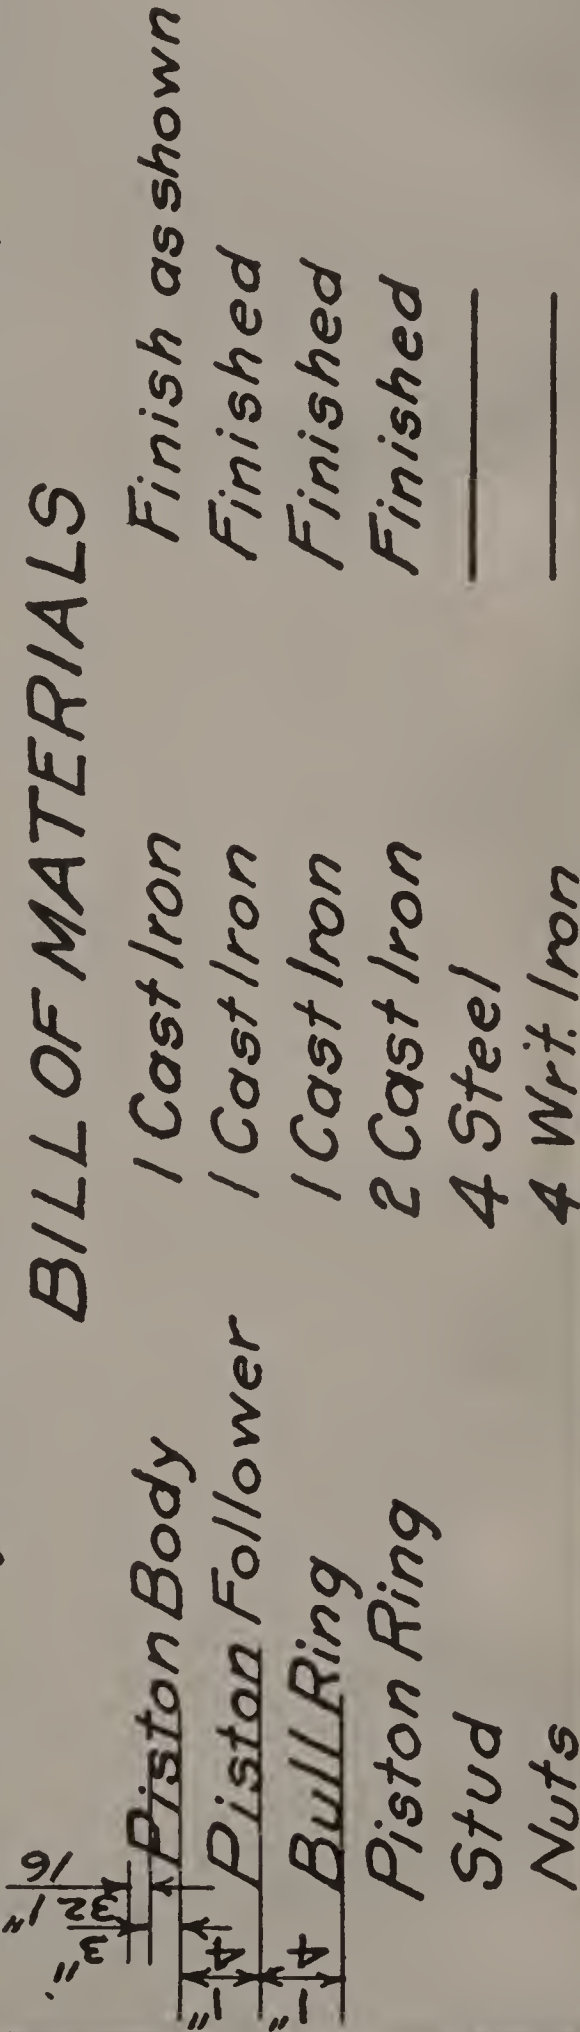 BILL OF MATERIALS
Piston Body 1 Cast Iron Finish as shown
Piston Follower 1 Cast Iron Finished
Bull Ring 1 Cast Iron Finished
Piston Ring 2 Cast Iron Finished
Stud 4 Steel
Nuts 4 Wrt. Iron
1"
16
3"
32
1"
4
1"
4